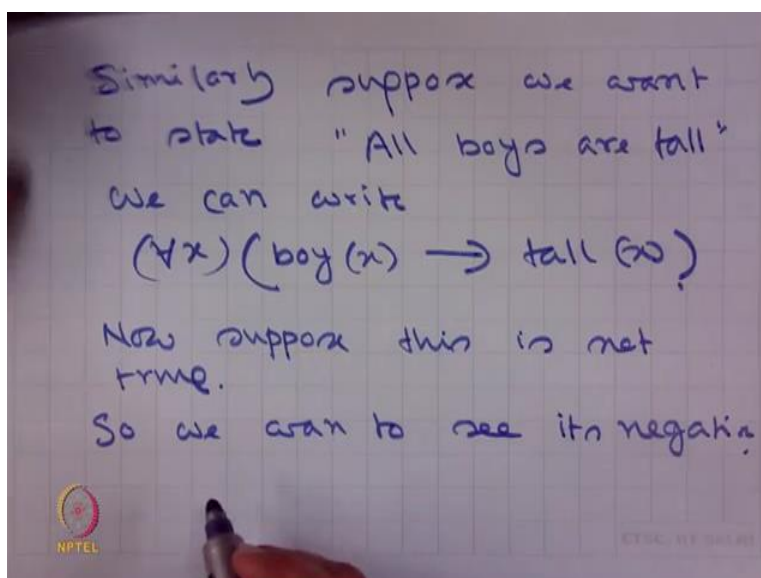 Similarly suppose we want
to state "All boys are tall"
we can write
(∀x)(boy(x) → tall(x))
Now suppose this is not
true.
So we wan to see its negatin
NPTEL
ETSC, IIT DELHI